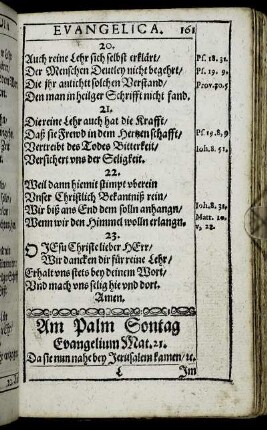 EVANGELICA. 161
20.
Auch reine Lehr sich selbst erklärt/ Ps. 18. 31.
Der Menschen Deutley nicht begehrt/ Ps. 19. 9.
Die jhr antichtt solchen Verstand/ Prov. 30. 5
Den man in heilger Schrifft nicht fand.
21.
Die reine Lehr auch hat die Krafft/
Daß sie Frewd in dem Hertzen schafft/ Ps. 19. 8, 9
Vertreibt des Todes Bitterkeit/ Ioh. 8. 51.
Versichert vns der Seligkeit.
22.
Weil dann hiemit stimpt vberein
Vnser Christlich Bekantniß rein/
Wir biß ans End dem solln anhangn/ Ioh. 8. 31.
Wenn wir den Himmel wolln erlangn. Matt. 10.
23. v. 22.
O JEsu Christe lieber HErr/
Wir dancken dir für reine Lehr/
Erhalt vns stets bey deinem Wort/
Vnd mach vns selig hie vnd dort.
Amen.
Am Palm Sontag
Evangelium Mat. 21.
Da sie nun nahe bey Jerusalem kamen/ ꝛc.
L Im